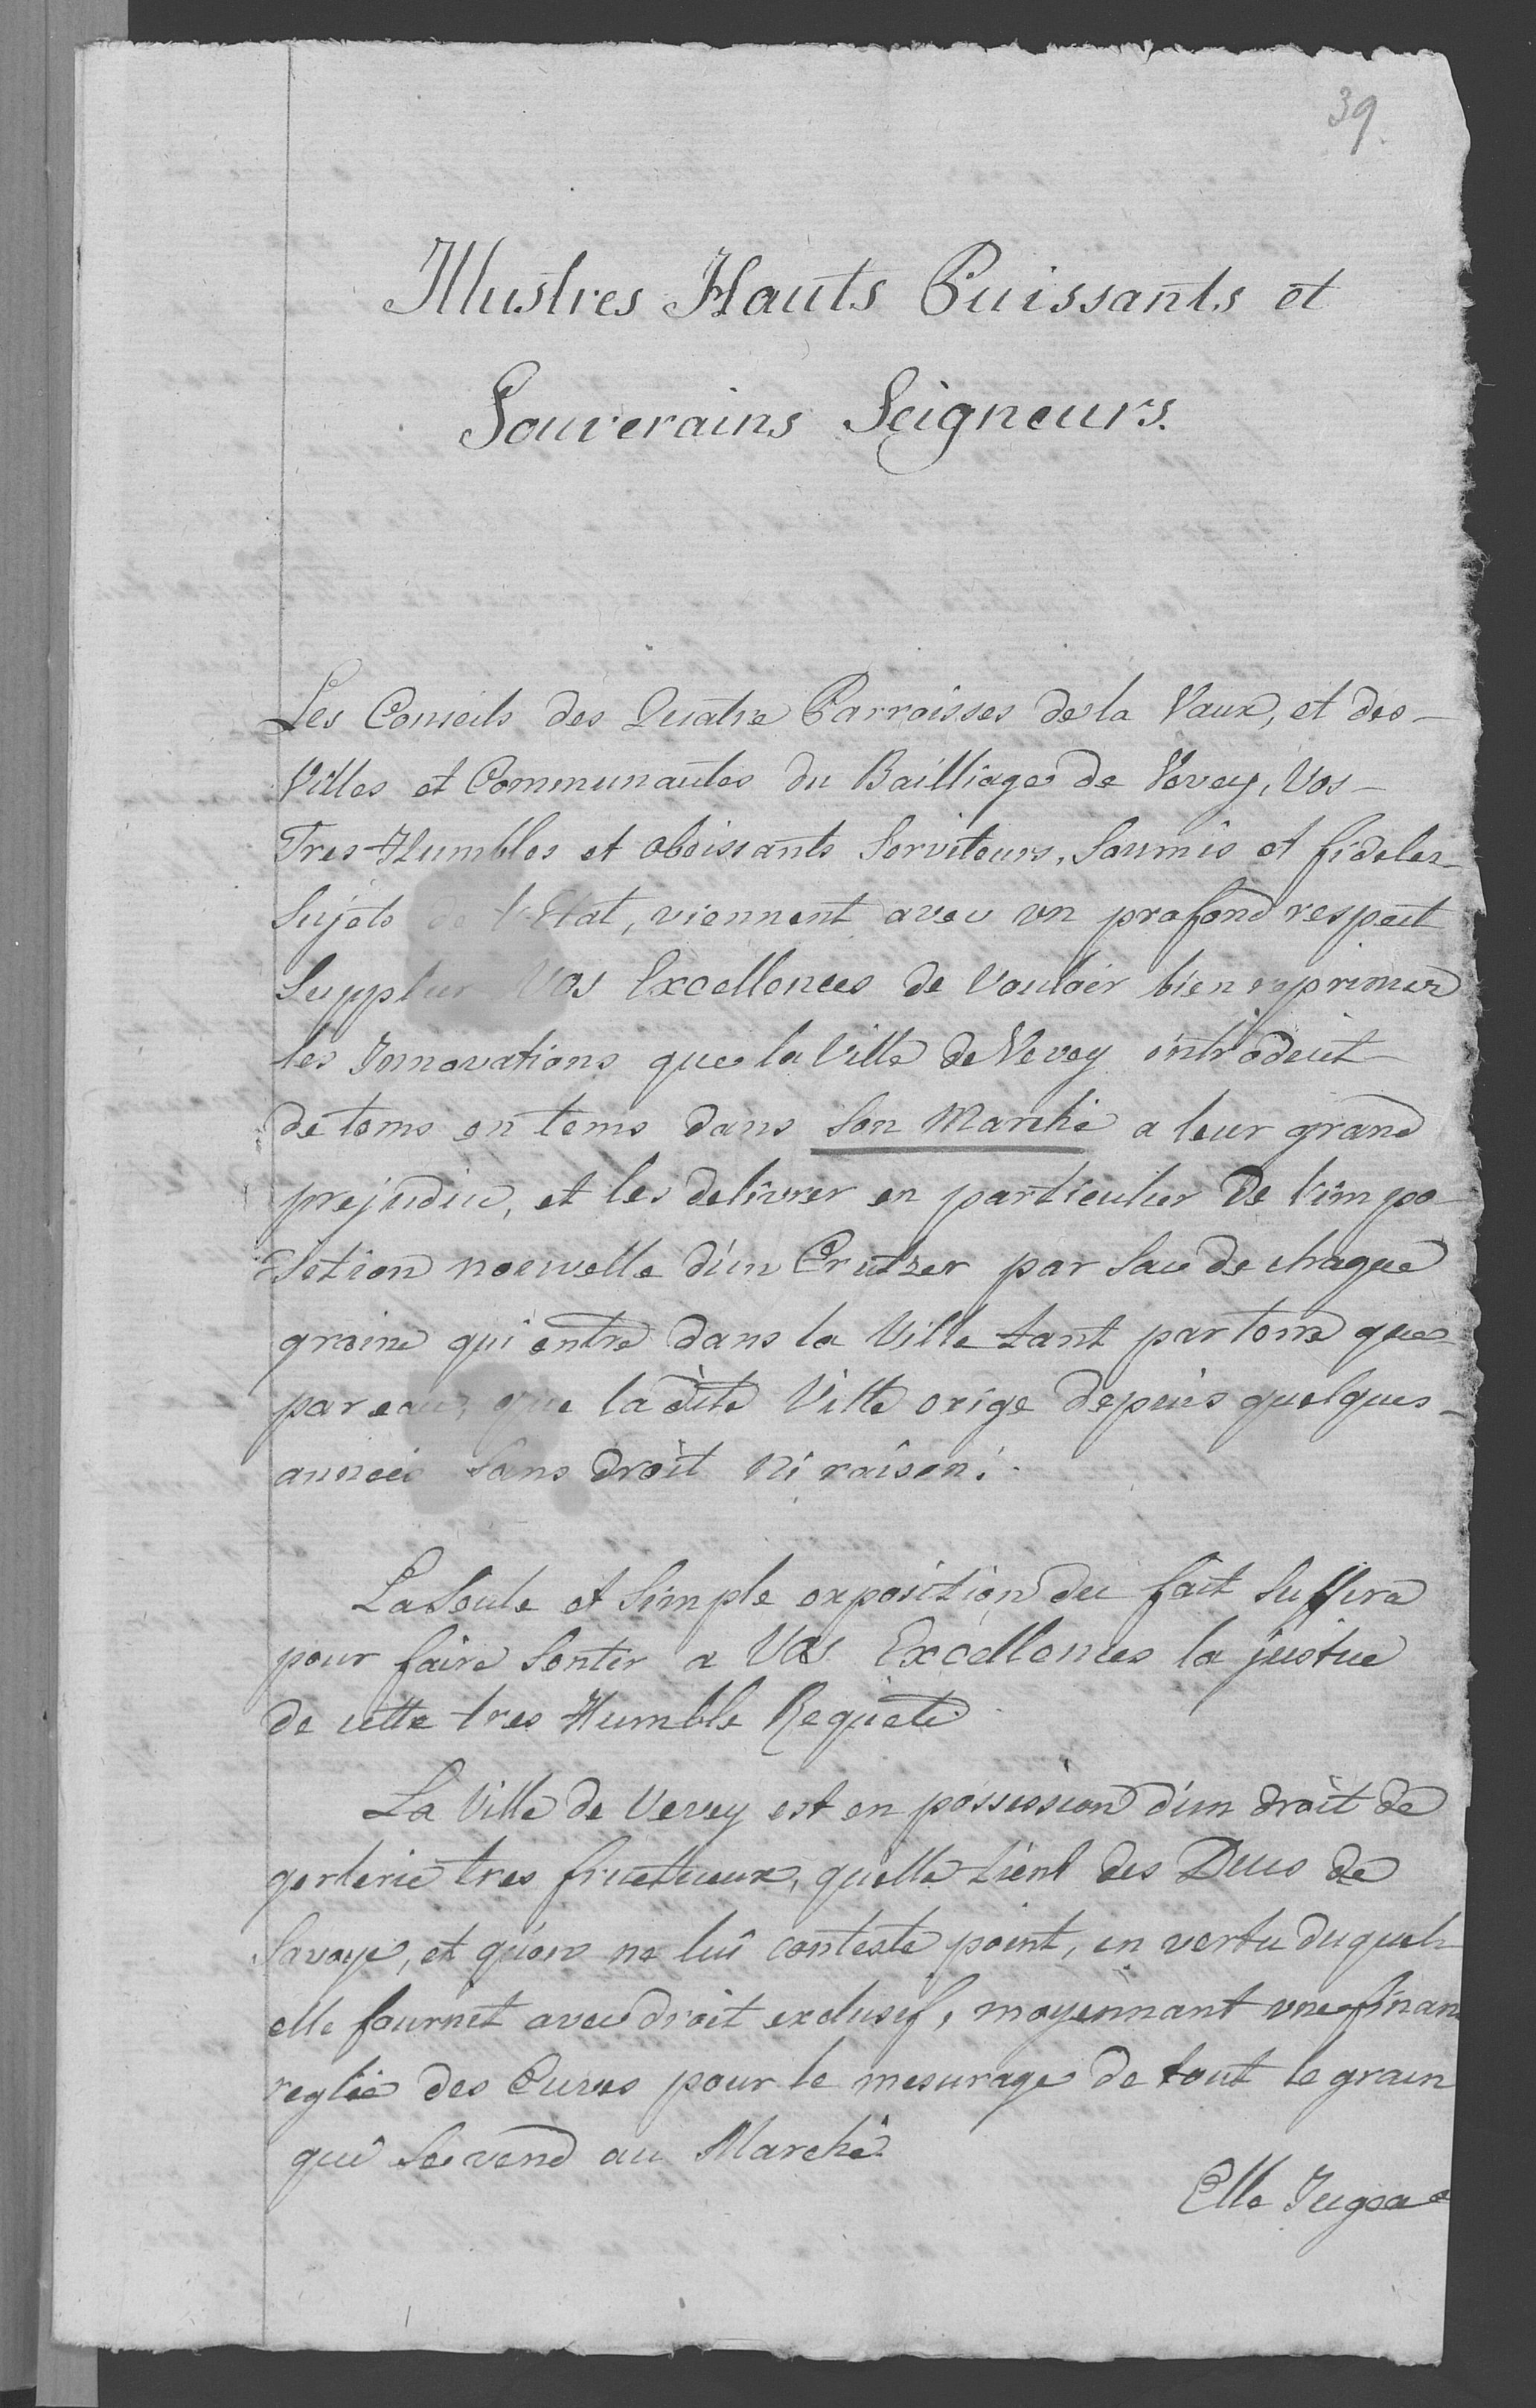 39.
Illustres Hauts Puissants et
Souverains Seigneurs.
Les Conseils des Quatre Parroisses de la Vaux, et des
Villes et Communautés du Bailliage de Vevey, Vos
Tres Humbles et obeissants Serviteurs, Soumis et fideles
Sujets de l'Etat, viennent avec un profond respect
Supplier Vos Excellences de Vouloir bien reprimer
les Innovations que la Ville de Vevey introduit
de tems en tems dans Son Marché a leur grand
prejudice, et les delivrer en particulier de l'impo
sition nouvelle d'un Crutzer par Sac de chaque
graine qui entre dans la Ville tant par terre que
par eau, que la dite Ville exige depuis quelques
années Sans droit ni raison.
La Seule et Simple exposition du fait Suffira
pour faire Sentir a Vos Excellences la justice
de cette tres Humble Requête.
La Ville de Vevey est en possession d'un droit de
gerlerie tres fructueux, quelle tient des Ducs de
Savoye, et qu'on ne lui conteste point, en vertu duquel
elle fournit avec droit exclusif, moyennant une finan
reglée des Cuves pour le mesurage de tout le grain
qui Se vend au Marché.
Elle Jugea